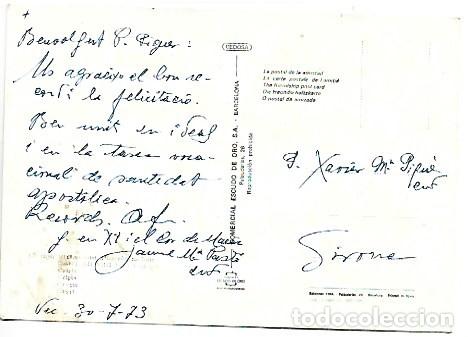 +
Benvolgut P. Piguer:
Us agraeixo el bon re-
cord i la felicitació.
Ben unit en ideal
i en la tasca voca-
cional de santidat
apostòlica.
Records.
en Xt i el Cor de Maria
Jaume Mª
cmf
Vic. 30-7-73
CEDOSA
COMERCIAL ESCUDO DE ORO, S.A. - BARCELONA
Palaudarias, 26
Reproducción prohibida
La postal de la amistad
La carte postale de l'amitié
The friendship post card
Die freundschaftskarte
O postal da amizade
P. Xavier Mª Piguer
cmf
Girona